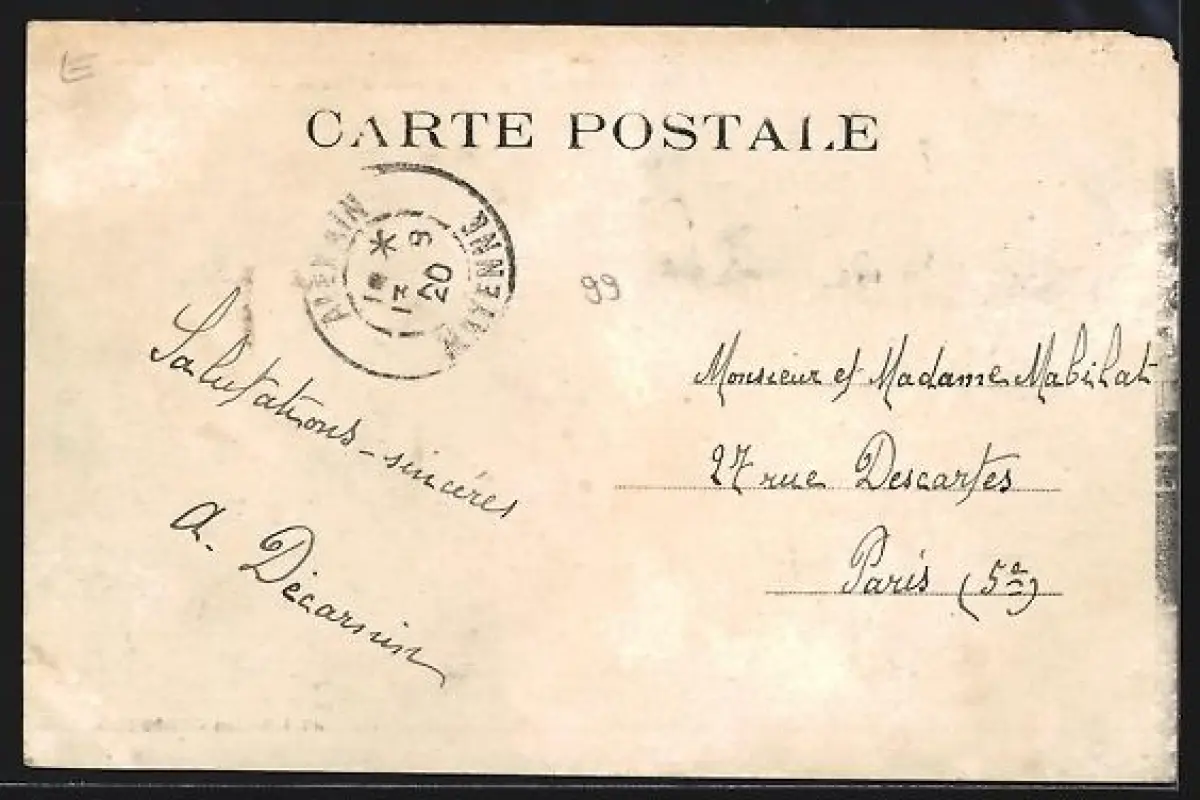 CARTE POSTALE
MAYENNE
* 6
20
99
Salutations - sincères
A. Décarnin
Monsieur et Madame Mabilat
27 rue Descartes
Paris (5e)